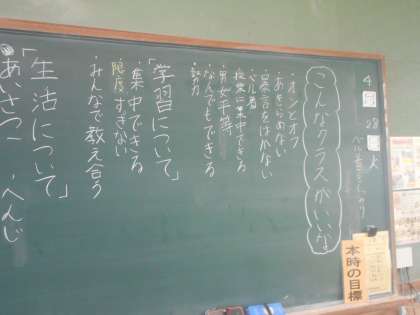 4
28
火
こんなクラスがいいな
・オンとオフ
・あきらめない
・暴言をはかない
・ベル着
・授業に集中できる
・男女平等
・なんでもできる
・努力
「学習について」
・集中できる
すぎない
・みんなで教え合う
「生活について」
あいさつ
・へんじ
本時の目標